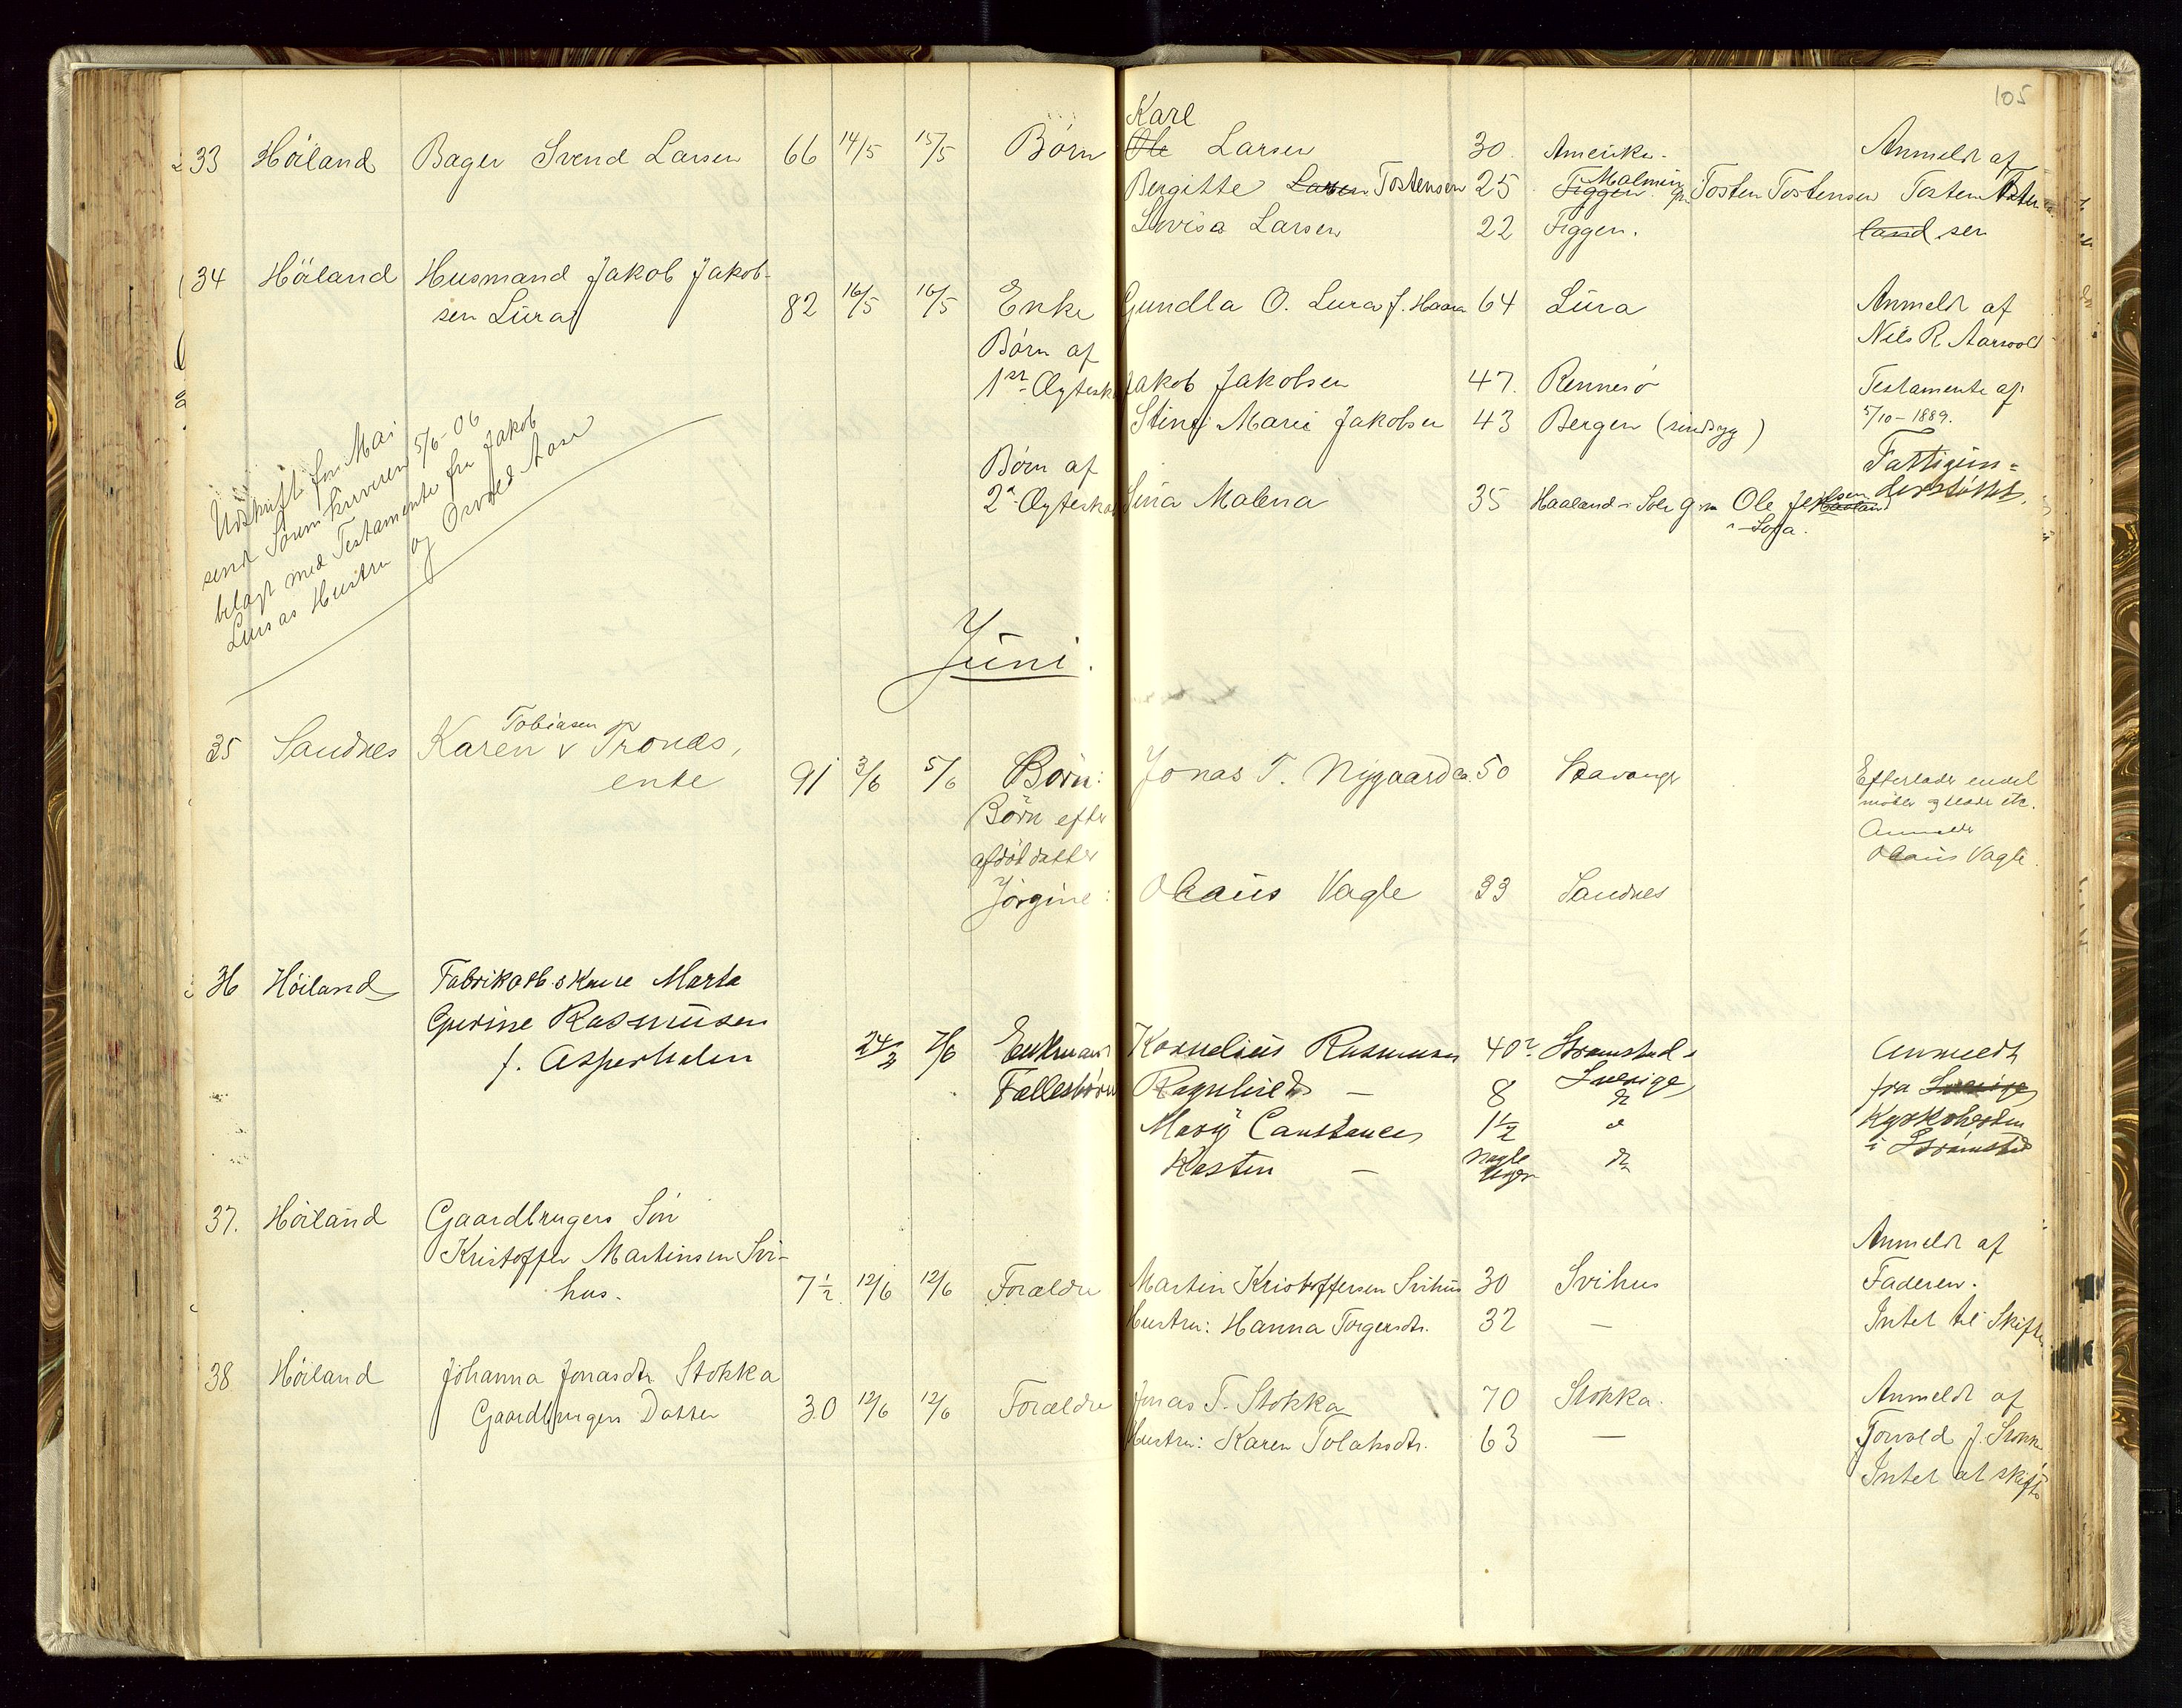 105
Karl
33 Höiland Bager Svend Larsen 66 14/5 15/5 Börn Ole Larsen 30 Amerika. Anmeldt af
Bergitte Larsen Tostensen 25 Figgen Malmin gm Tosten Tostensen Tosten Tosten
Lovisa Larsen 22 Figgen. land sen
34 Höiland Husmand Jakob Jakob-
sen Lura 82 16/5 16/5 Enke Gundla O. Lura f. Haaa 64 Lura Anmeldt af
Börn af Nils R. Aarvold
1ste Ægtesk Jakob Jakobsen 47. Rennesö Testamente af
Stine Marie Jakobsen 43 Bergen (sindsyg) 5/10-1889.
Börn af Fattigun=
2d Ægteska Sina Malena 35 Haaland i Sole gm Ole Jakobsen Haaland derstöttet.
i Sola.
Udskrift for Mai
sendt Sorenskriveren 5/6-06
bilagt med Testamente fra Jakob
Luras Hustru og Orvold Aase
Juni.
Tobiasen
35 Sandnes Karen v Tronds,
enke 91 3/6 5/6 Börn: Jonas T. Nygaard ca. 50 Stavanger Efterlader endel
Börn efter möbler og klæder etc.
afdöd datter Anmeldt
Jörgine: Olaus Vagle 33 Sandnes Olaus Vagle.
36 Höiland Fabrikarb.s Kone Marta
Gurine Rasmusen
f. Asperholen 24/3 7/6 Enkmand Kornelius Rasmusen 40? Strømstad i Anmeldt
Sverige,
Fællesbörn Ragnhild — 8 do fra Sverige
Mary Constance 1 1/2 do Kyrkoherden
Kasten — Nogle Uger do i Strömstad
37. Höiland Gaardbrugers Sön
Kristoffer Martinsen Svi- Anmeldt af
hus. 7 1/2 12/6 12/6 Forældre Martin Kristoffersen Svihus 30 Svihus Faderen.
Hustru: Hanna Torgersdtr. 32 — Intet til Skifte
38 Höiland Johanna Jonasdtr Stokka
Gaardbrugers Datter 30 12/6 12/6 Forældre Jonas T. Stokka 70 Stokka. Anmeldt af
Hustru: Karen Tolaksdtr. 63 — Torvald J. Stokka
Intet at skifte